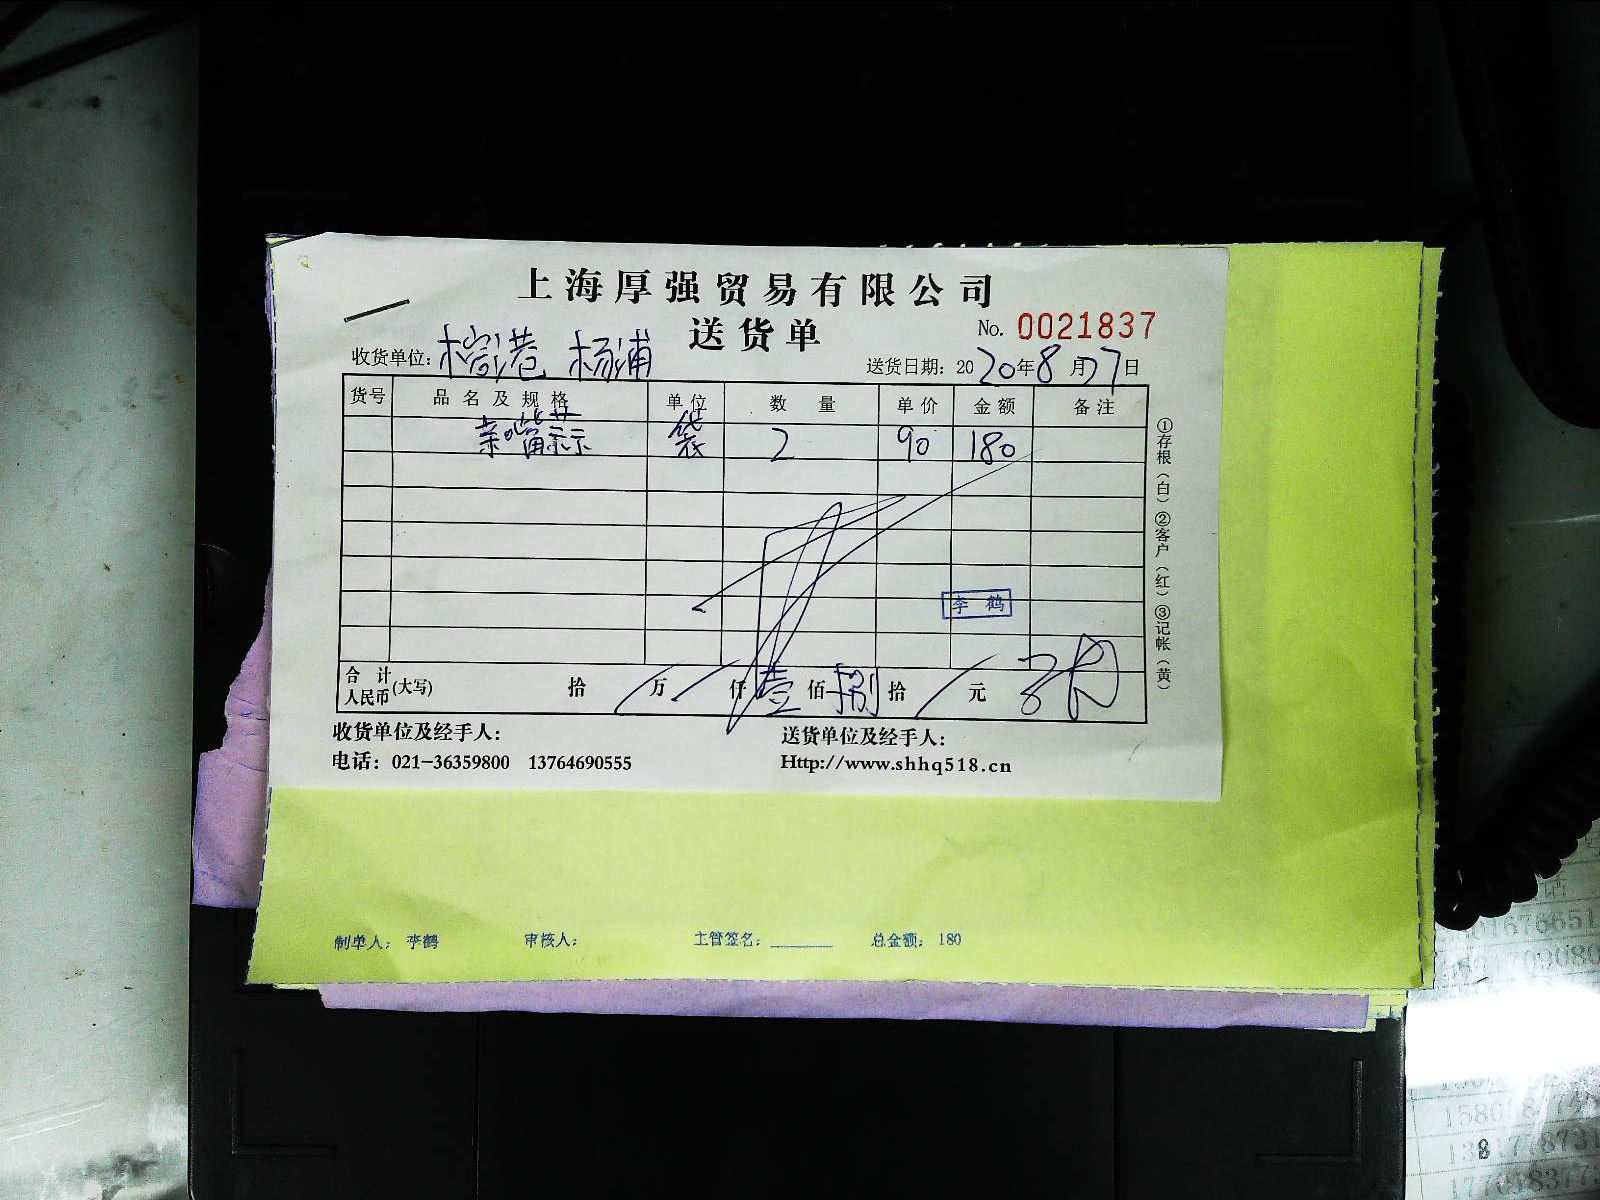 上海厚强贸易有限公司
送货单
No. 0021837
收货单位: 杨浦
送货日期: 2020年8月27日
货号 品名及规格 单位 数量 单价 金额 备注
袋 2 90 180
李鹤
合计人民币(大写) 拾 / 万 / 仟 壹 佰 捌 拾 / 元
①存根(白)②客户(红)③记帐(黄)
收货单位及经手人:
送货单位及经手人:
电话: 021-36359800 13764690555
Http://www.shhq518.cn
制单人: 李鹤 审核人: 主管签名: ______ 总金额: 180